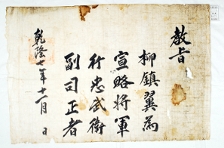 敎旨
柳鎮翼爲
宣略將軍
行忠武衛
副司正者
乾隆 年十一月 日